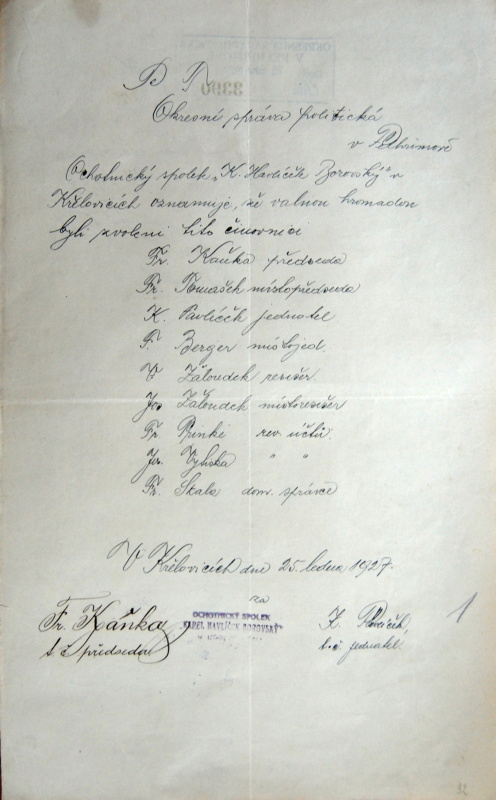 Okresní správa politická
v Pelhřimově
Ochotnický spolek „K. Havlíček Borovský" v
Křelovicích oznamuje, že valnou hromadou
byli zvoleni tito činovníci
Fr. Kaňka předseda
Fr. Tomašek místopředseda
K. Pavlíček jednatel
F. Berger místojed.
V. Žaloudek režisér.
Jos Žaloudek místorežisér
Fr. rev. účtů.
Jos. " "
Fr. Skala dom. správce
V Křelovicích dne 25. ledna 1927.
za
Fr. Kaňka
t. č. předseda
OCHOTNICKÝ SPOLEK
„KAREL HAVLÍČEK BOROVSKÝ"
K. Pavlíček
t. č. jednatel.
1
92